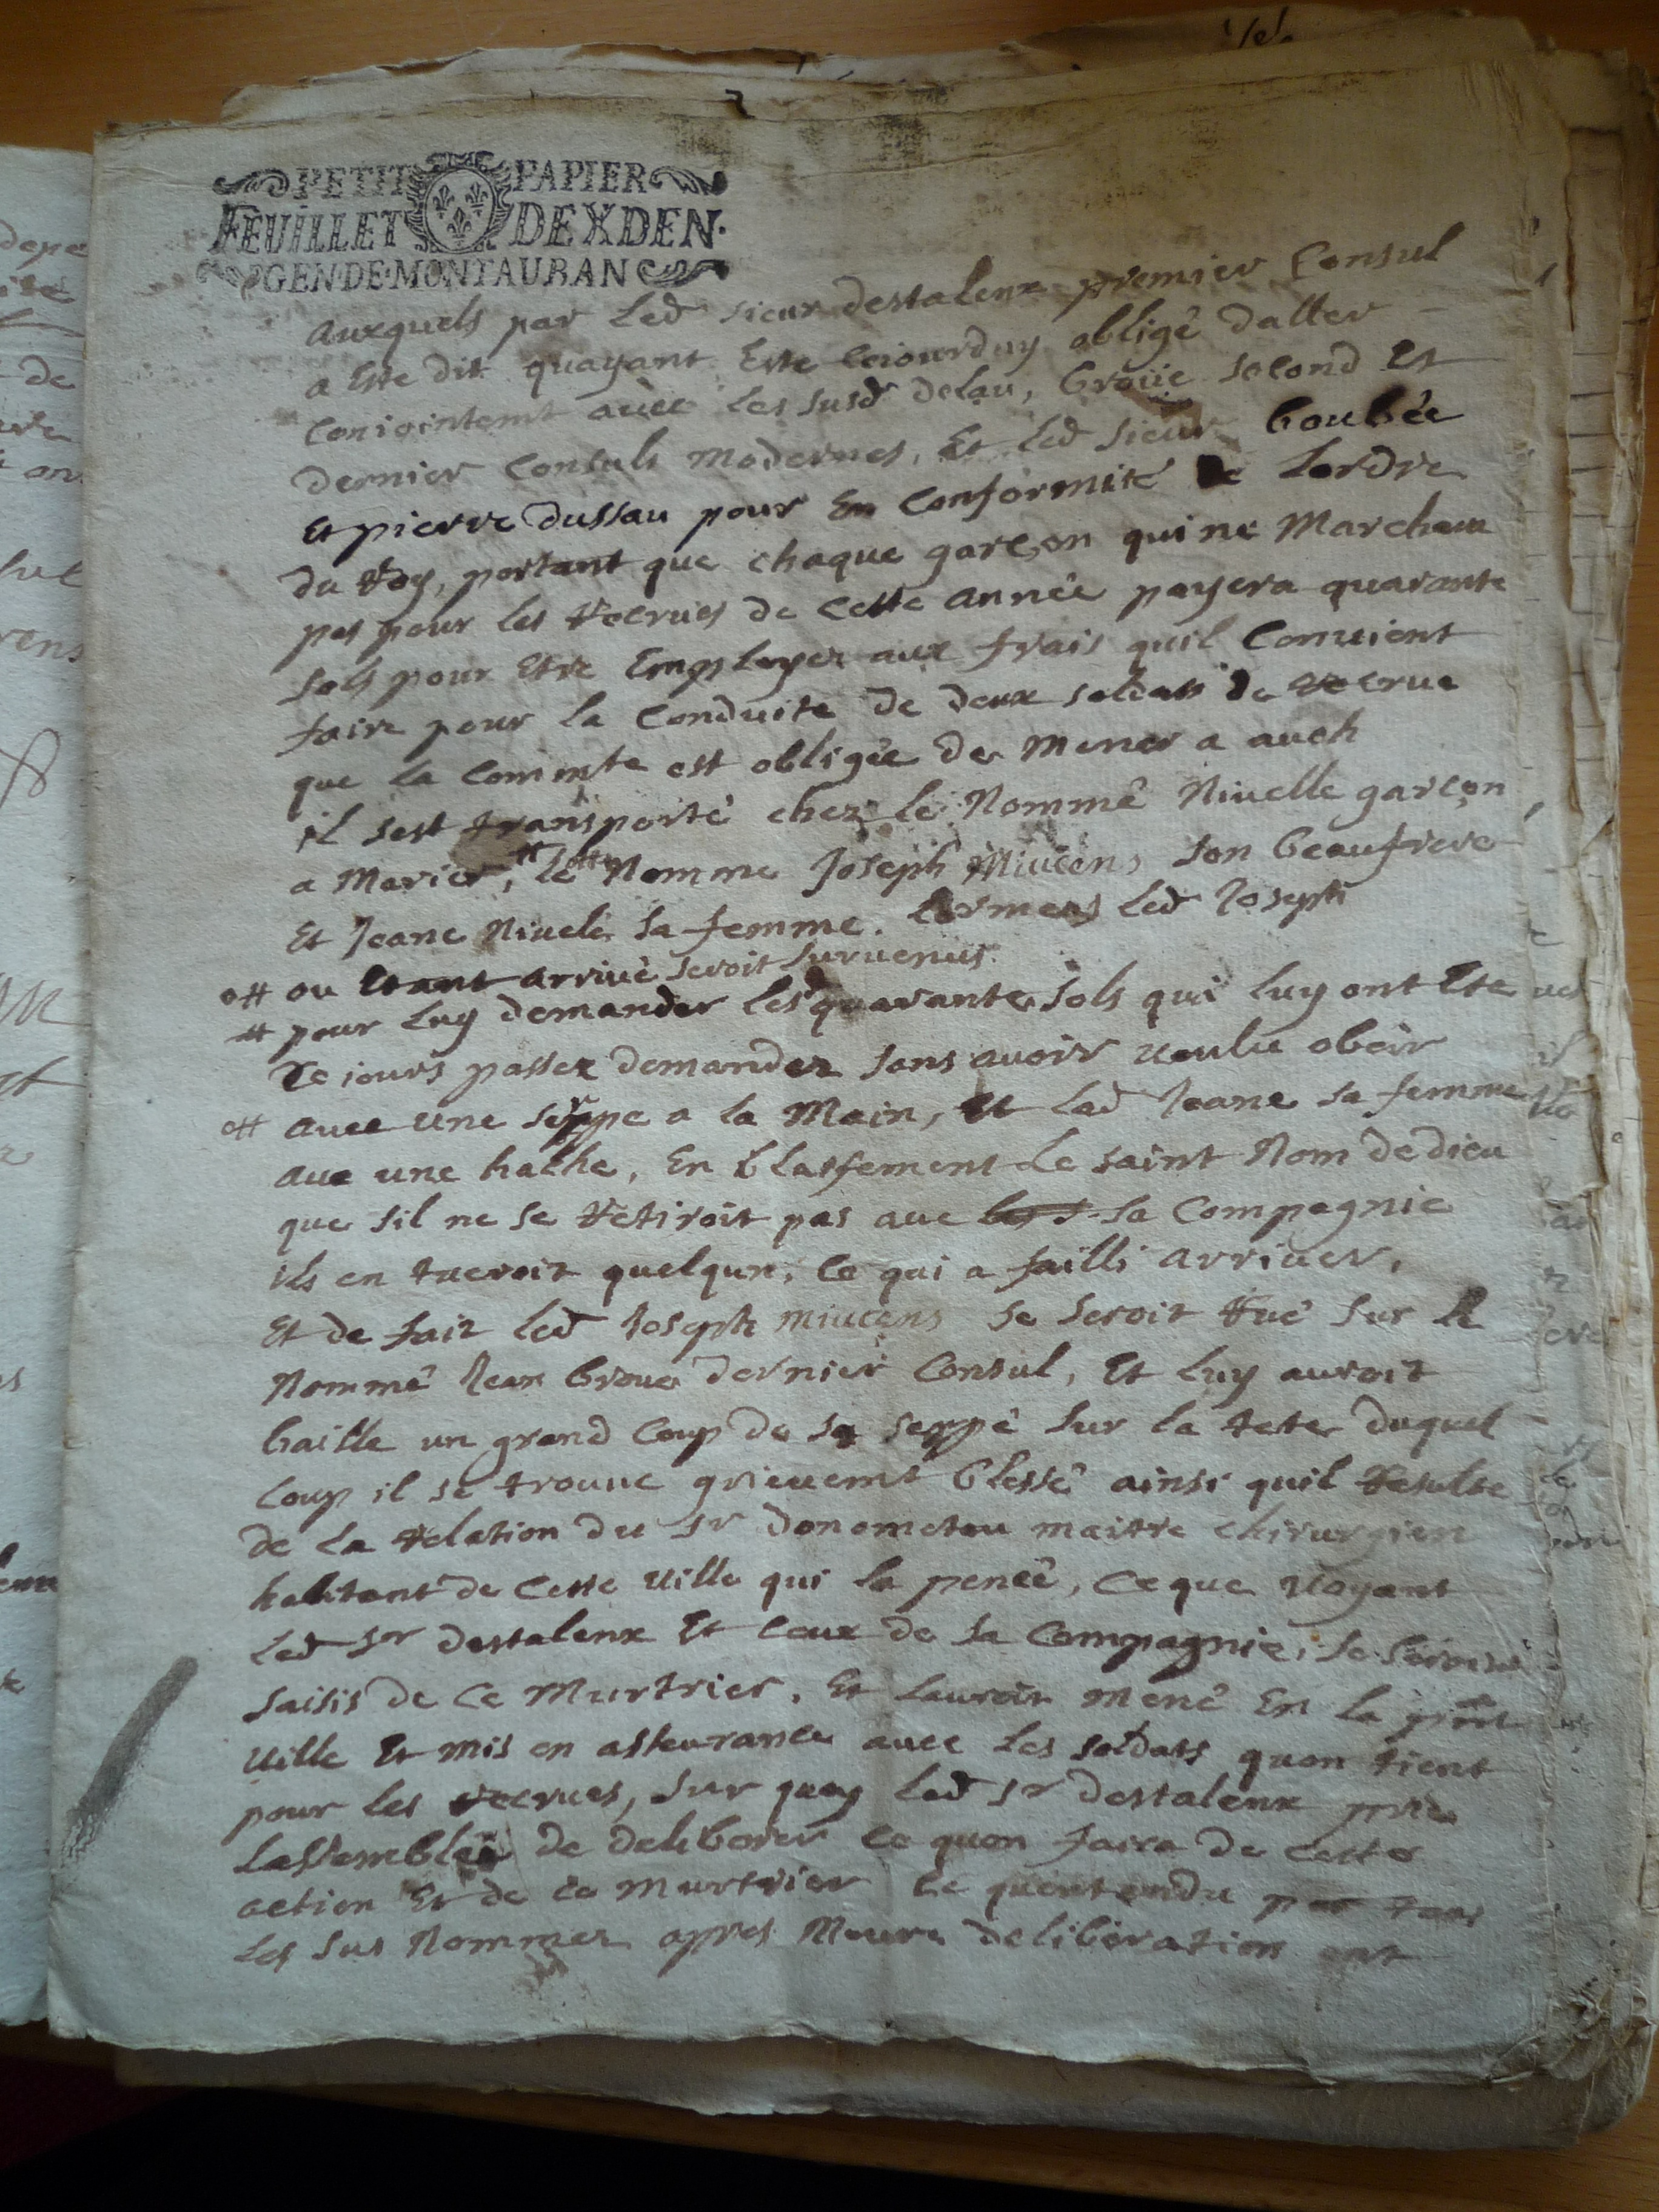 PETIT PAPIER
FEUILLET DE X DEN.
GEN. DE MONTAUBAN
auxquels par led sieur destalenx premier Consul
a este dit quayant este cejourduy obligé daller
conjointemt avec les susd delau, broüe second et
dernier consuls modernes, et led sieur boubée
et pierre dussau pour en conformité de lordre
du roy, portant que chaque garçon qui ne marchera
pas pour les recrues de cette année payera quarante
sols pour etre employez aux frais quil convient
faire pour la conduite de deux soldats de recrue
que la commte est obligée de mener a auch
il sest transporté chez le nommé Nivelle garçon
a marier, # o# le nomme Joseph Mivcens son beaufrere
et Jeane Nivele sa femme. Armens led Joseph
o# ou etant arrivé seroit survenus
# pour luy demander les quarante sols qui luy ont ete
ce jours passez demandez sans avoir voulu obeir
o# avec une serppe a la main, et lad Jeane sa femme
ave une hache, en blasfement le saint nom de dieu
que sil ne se retiroit pas ave sa compagnie
ils en tueroit quelqun, ce qui a failli arriver,
et de fait led Joseph mivcens se seroit rué sur le
nommé Jean broue dernier consul, et luy auroit
baille un grand coup de sa seppe sur la tete duquel
coup il se trouve grievemt blessé ainsi quil resulte
de la relation du sr donometau maitre chirurgien
habitant de cette ville qui la pensé, ce que voyant
led sr destalenx et ceux de sa compagnie, se seroint
saisis de ce murtrier, et lauroit mené en la pnte
ville et mis en assurance avec les soldats quon tient
pour les recrues, sur quoy led sr destalenx prie
lassemblée de deliberer ce quon faira de cette
action et de ce murtrier ce quentendu par tous
les sus nommez apres meure deliberation ont